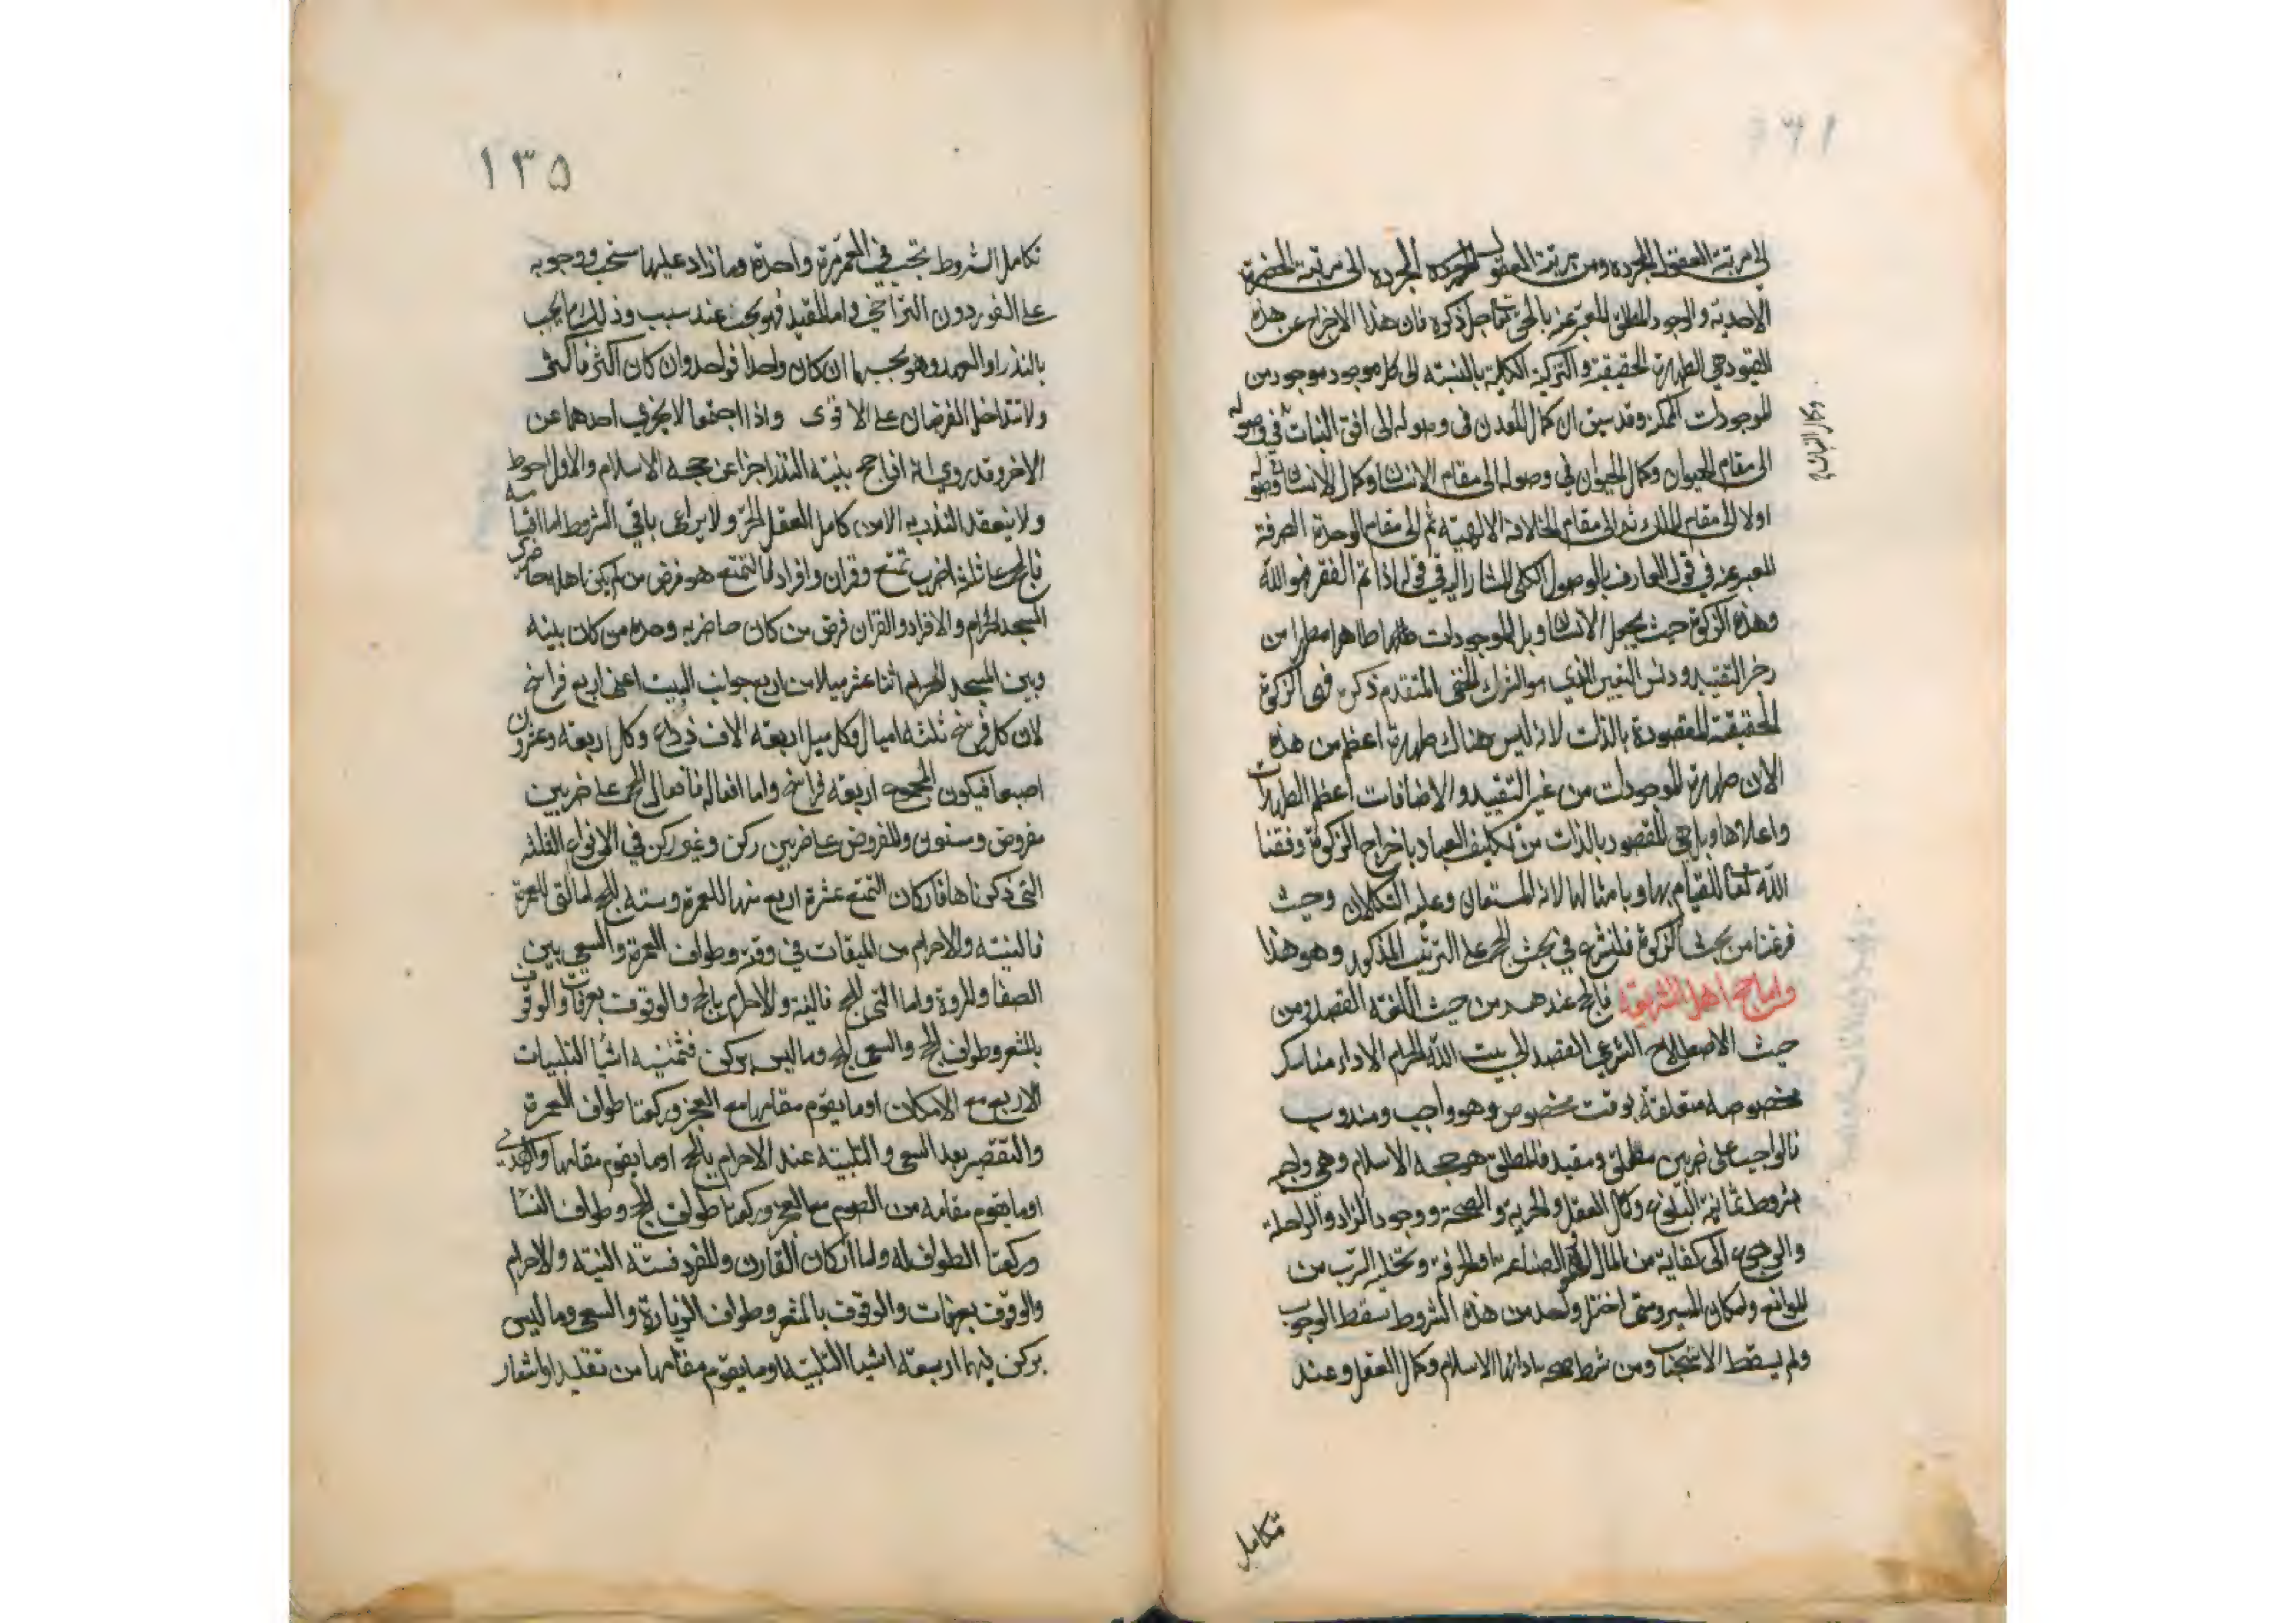 الى مرتبة العقول المجردة ومن مرتبة العقول المجردة الى مرتبة الحضرة
الاحدية والوجود المطلق المعبر عنه بالحق تعا جل ذكره فان هذا الاخراج عن هذه
القيود هى الطهارة الحقيقة والتزكية الكلية بالنسبة الى كل موجود موجود من
الموجودات الممكنة وقد سبق ان كمال المعدن فى وصوله الى افق النبات فى وصوله
وكمال النبات
الى مقام الحيوان وكمال الحيوان فى وصوله الى مقام الانسان وكمال الانسان فى وصوله
اولا الى مقام الملك ثم الى مقام الخلافة الالهية ثم الى مقام الوحدة الصرفة
المعبر عنه في قول العارف بالوصول الكلى المشار اليه في قوله اذا تم الفقر فهو الله
وهذه الزكوة حيث يجعل الانسان وبل الموجودات كلها طاهرا مطهرا من
التقييد ودنس التعين الذي هو الشرك الخفى المتقدم ذكره فهى الزكوة
الحقيقة المقصودة بالذات لانه ليس هناك طهارة اعظم من هذه
الان طهارة الموجودات من غير التقييد والاضافات اعظم الطهارات
واعلاها وبل هى المقصود بالذات من تكليف العباد باخراج الزكوة وفقنا
الله تعا للقيام بها وبامثالها لانه المستعان وعليه التكلان وحيث
فرغنا من بحث الزكوة فلنشرع في بحث الحج على الترتيب المذكور وهو هذا
واما حج اهل الشريعة فالحج عندهم من حيث اللغة القصد ومن
حيث الاصطلاح الشرعي القصد الى بيت الله الحرام الاداء مناسك
مخصوصه متعلقة بوقت مخصوص وهو واجب ومندوب
فالواجب على ضربين مطلق ومقيد فالمطلق هو حجة الاسلام وهى واجبة
بشروط ثمانية البلوغ وكمال العقل والحرية والصحة ووجود الزاد والراحلة
والرجوع الى كفاية من المال او الصناعة او الحرفة وتخلية الرب من
الموانع وامكان المسير ومتى اختل واحد من هذه الشروط سقط الوجوب
ولم يسقط الاستحباب ومن شرط صحة ادائها الاسلام وكمال العقل وعند
تكامل
١٣٥
تكامل الشروط تجب في العمر مرة واحدة وما زاد عليها مستحب ووجوبه
على الفور دون التراخي واما المقيد فهو يجب عند سبب وذلك ما يجب
بالنذر او العهد وهو بحسبهما ان كان واحدا فواحد وان كان اكثر فاكثر
ولا تتداخل الفرضان على الاقوى واذا اجتمعا لا يجزي احدهما عن
الاخر وقد روي انه اذا حج بنية النذر اجزا عن حجة الاسلام والاول احوط
ولا ينعقد النذر به الا من كامل العقل الحر ولا يراعى باقي الشروط اما اقسامه
فالحج على ثلثة اضرب تمتع وقران وافراد فالتمتع هو فرض من لم يكن اهله حاضرى
المسجد الحرام والافراد والقران فرض من كان حاضريه وحده من كان بينه
وبين المسجد الحرام اثنا عشر ميلا من اربع جوانب البيت اعنى اربع فراسخ
لان كل فرسخ ثلثة اميال وكل ميل اربعة الاف ذراع وكل اربعة وعشرون
اصبعا فيكون المجموع اربعة فراسخ واما افعاله فافعال الحج على ضربين
مفروض ومسنون والمفروض على ضربين ركن وغير ركن في الانواع الثلثة
التى ذكرناها فاركان التمتع عشرة اربع منها للعمرة وستة للحج اما التى للعمرة
فالنية والاحرام من الميقات في وقته وطواف العمرة والسعي بين
الصفا والمروة واما التى للحج فالنية والاحرام بالحج والوقوف بعرفات والوقوف
بالمشعر وطواف الحج والسعى للحج وما ليس بركن فثمنية اشيا التلبيات
الاربع مع الامكان او ما يقوم مقامها مع العجز وركعتا طواف العمرة
والتقصير بعد السعى والتلبية عند الاحرام بالحج او ما يقوم مقامها والهدي
او ما يقوم مقامه من الصوم مع العجز وركعتا طواف الحج وطواف النسا
وركعتا الطواف له واما اركان القارن والمفرد فستة النية والاحرام
والوقوف بعرفات والوقوف بالمشعر وطواف الزيارة والسعى وما ليس
بركن فيهما اربعة اشيا التلبية او ما يقوم مقامها من تقليد او اشعار